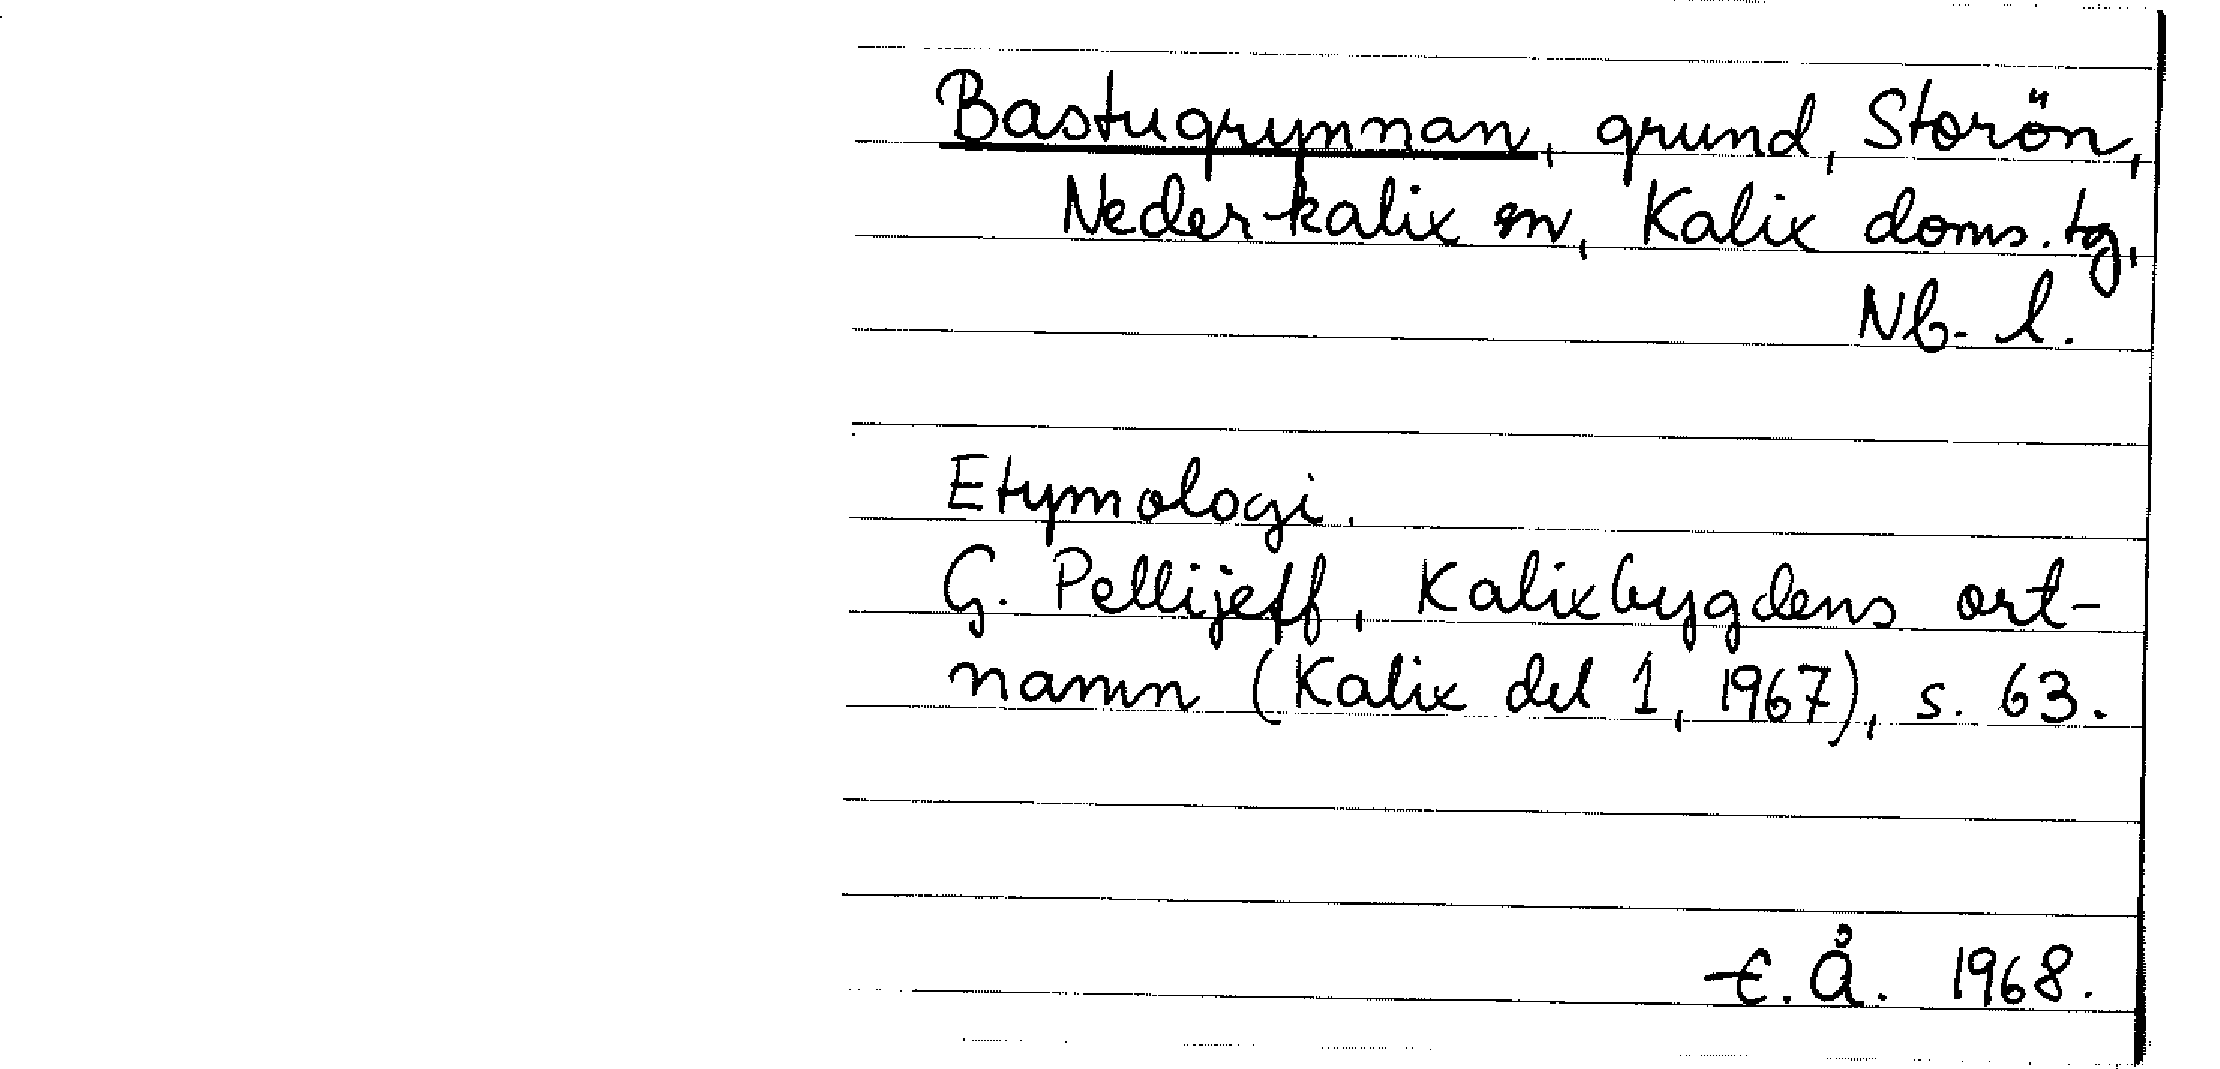 Bastugrynnan, grund, Storön,
Nederkalix sn, Kalix doms. tg,
Nb. l.
Etymologi.
G. Pellijeff, Kalixbygdens ort-
namn (Kalix del 1, 1967), s. 63.
E. Å. 1968.